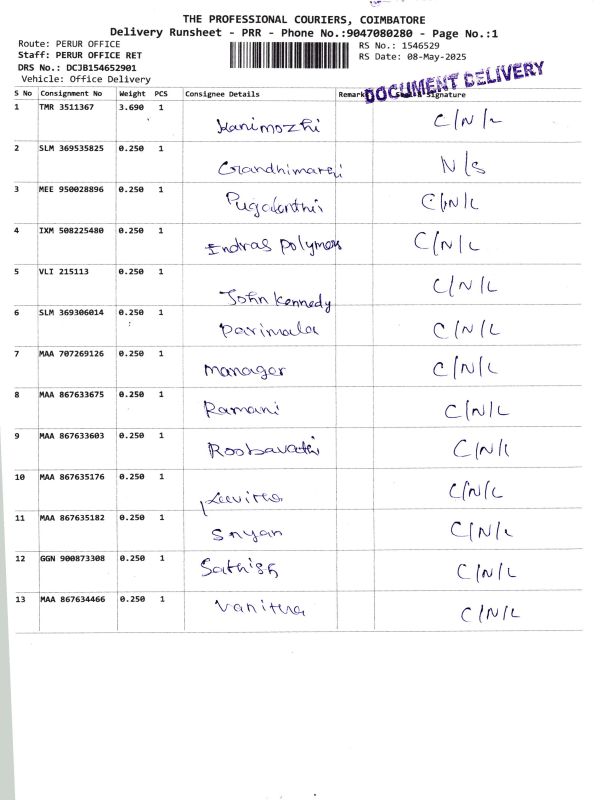 THE PROFESSIONAL COURIERS, COIMBATORE
Delivery Runsheet - PRR - Phone No.:9047080280 - Page No.:1
Route: PERUR OFFICE
Staff: PERUR OFFICE RET
DRS No.: DCJB154652901
Vehicle: Office Delivery
RS No.: 1546529
RS Date: 08-May-2025
DOCUMENT DELIVERY
S No Consignment No Weight PCS Consignee Details Remark Signature
1 TMR 3511367 3.690 1 Kanimozhi C/N/L
2 SLM 369535825 0.250 1 N/S
3 MEE 950028896 0.250 1 Pugalenthi C/N/L
4 IXM 508225480 0.250 1 Indras polymers C/N/L
5 VLI 215113 0.250 1 John Kennedy C/N/L
6 SLM 369306014 0.250 1 Parimala C/N/L
7 MAA 707269126 0.250 1 Manager C/N/L
8 MAA 867633675 0.250 1 Ramani C/N/L
9 MAA 867633603 0.250 1 Roobavathi C/N/L
10 MAA 867635176 0.250 1 C/N/L
11 MAA 867635182 0.250 1 C/N/L
12 GGN 900873308 0.250 1 Sathish C/N/L
13 MAA 867634466 0.250 1 Vanitha C/N/L